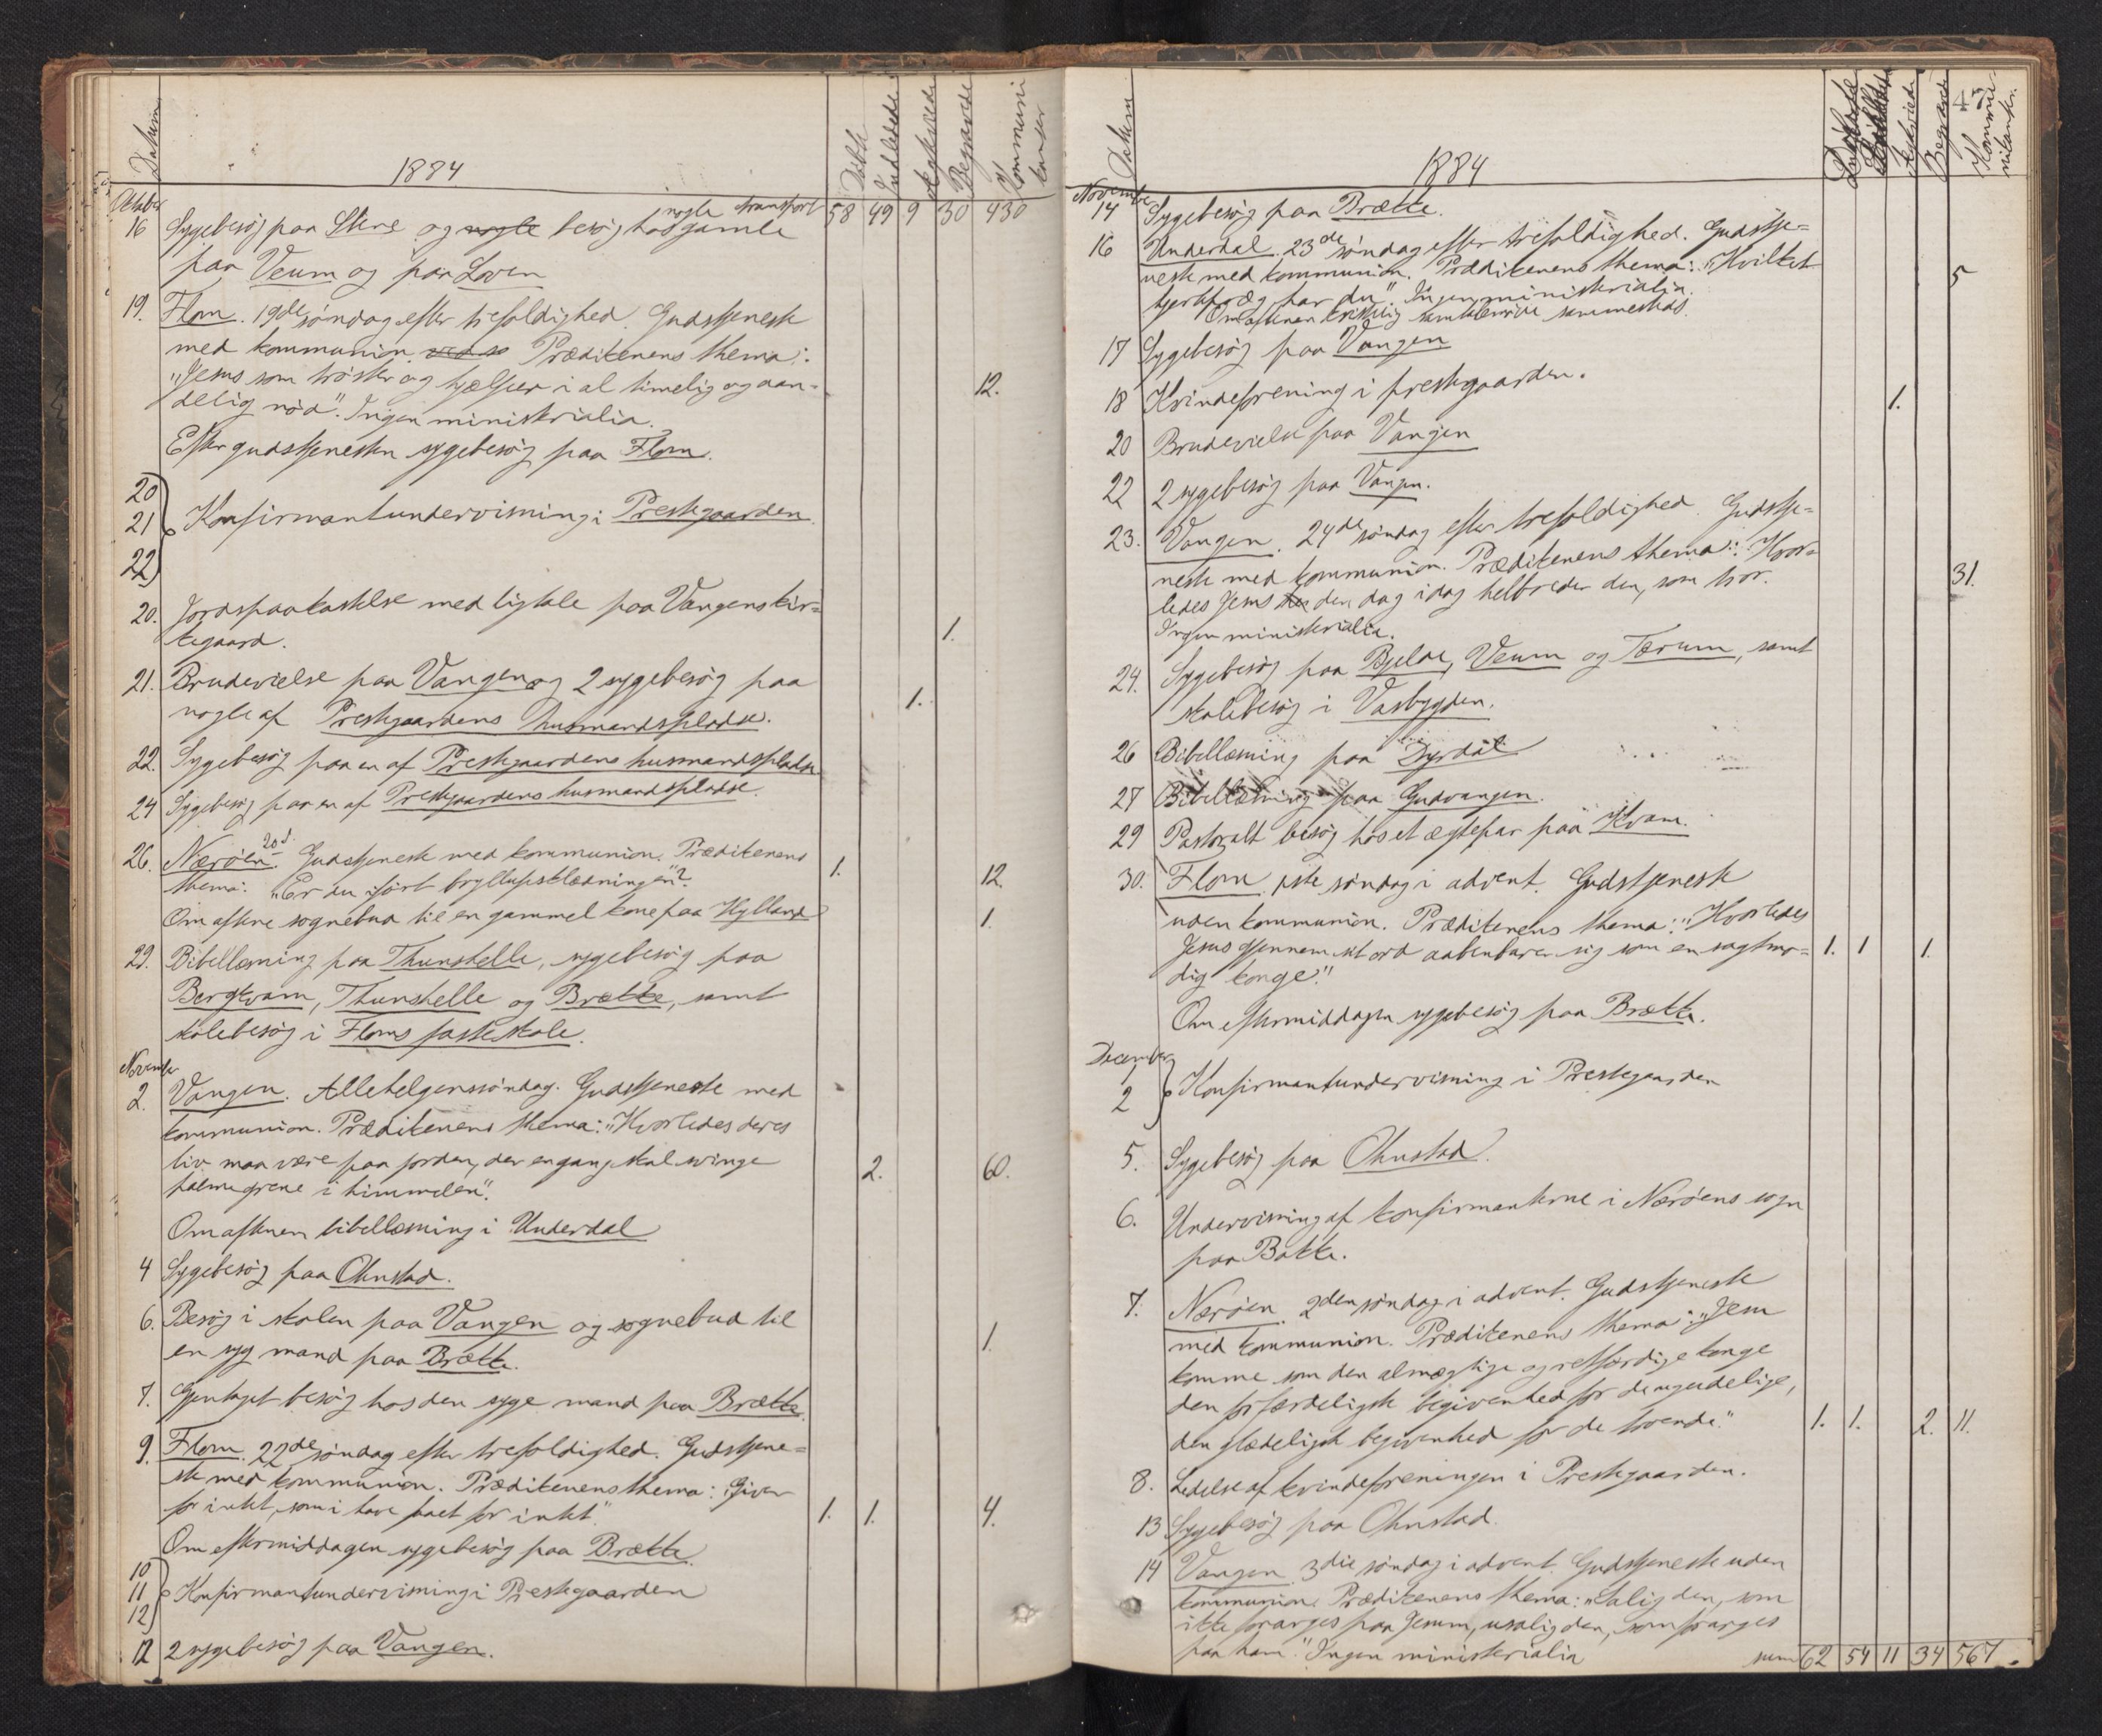 Datum
1884
Døbte
Indledede
Ægteviede
Begravede
Kommunikanter
Oktober
nogle transport 58 49 9 30 430
16 Sygebesøg paa Stene og nogle besøg hos gamle
paa Veum og paa Loven
19. Flom. 19de søndag efter trefoldighed. Gudstjeneste
med kommunion. Prædikenens thema:
"Jesus som trøster og hjælper i al timelig og aan-
delig nød". Ingen ministerialia. 12.
Efter gudstjenesten sygebesøg paa Flom.
20
21 Konfirmantundervisning i Prestegaarden.
22
20. Jordspaakastelse med ligtale paa Vangens kir-
kegaard. 1.
21. Brudevielse paa Vangen og 2 sygebesøg paa
nogle af Prestegaardens husmandspladse. 1.
22. Sygebesøg paa en af Prestegaardens husmandspladse
24 Sygebesøg paa en af Prestegaardens husmandspladse.
26. Nærøen 20d. Gudstjeneste med kommunion. Prædikenens
thema: "Er du iført bryllupsklædningen"? 1. 12.
Om aftene sognebud til en gammel kone paa Hylland 1.
29. Bibellæsning paa Thunshelle, sygebesøg paa
Bergkvam, Thunshelle og Brække, samt
skolebesøg i Floms fasteskole.
November
2. Vangen. Allehelgenssøndag. Gudstjeneste med
kommunion. Prædikenens thema: "Hvorledes deres
liv maa være paa jorden, der engang skal svinge
palmegrene i himmelen". 2. 60.
Om aftenen bibellæsning i Underdal
4 Sygebesøg paa Ohnstad.
6. Besøg i skolen paa Vangen og sognebud til
en syg mand paa Brække. 1.
7. Gjentaget besøg hos den syge mand paa Brække.
9. Flom. 22de søndag efter trefoldighed. Gudstjene-
ste med kommunion. Prædikenens thema: "Giver
for intet, som i have faaet for intet." 1. 1. 4.
Om eftermiddagen sygebesøg paa Brække.
10
11 Konfirmantundervisning i Prestegaarden
12
12 2 sygebesøg paa Vangen.
47
Datum
1884
Ægteviede
Begravede
Kommunikanter
November
14 Sygebesøg paa Brække.
16 Underdal. 23de søndag efter trefoldighed. Gudstje-
neste med kommunion. Prædikenens thema: "Hvilket 5
hjertepræg har du". Ingen ministerialia.
Om aftenen kristelig sammenkomst sammesteds.
17 Sygebesøg paa Vangen
18 Kvindeforening i prestegaarden.
20 Brudevielse paa Vangen 1.
22 2 sygebesøg paa Vangen.
23. Vangen. 24de søndag efter trefoldighed. Gudstje-
neste med kommunion. Prædikenens thema: "Hvor-
ledes Jesus den dag idag helbreder den, som tror. 31.
Ingen ministerialia.
24. Sygebesøg paa Bjelde, Veum og Tærum, samt
skolebesøg i Vasbygden.
26 Bibellæsning paa Dyrdal
27 Bibellæsning paa Gudvangen.
29 Pastoralt besøg hos et ægtepar paa Kvam.
30. Flom. 1ste søndag i advent. Gudstjeneste
uden kommunion. Prædikenens thema: "Hvorledes
Jesus gjennem sit ord aabenbarer sig som en sagtmo- 1. 1 1.
dig konge".
Om eftermiddagen sygebesøg paa Brække.
December
1
2 Konfirmantundervisning i Prestegaarden
5. Sygebesøg paa Ohnstad.
6. Undervisning af konfirmanterne i Nærøens sogn
paa Bakke.
7. Nærøen. 2den søndag i advent. Gudstjeneste
med kommunion. Prædikenens thema: "Jesu
komme som den almægtige og retfærdige konge
den forfærdeligste begivenhed for de ugudelige,
den glædeligste begivenhed for de troende." 1. 1. 2. 11.
8. Ledelse af kvindeforeningen i Prestegaarden.
13 Sygebesøg paa Ohnstad.
14 Vangen. 3die søndag i advent. Gudstjeneste uden
kommunion. Prædikenens thema: "Salig den, som
ikke forarges paa Jesum, usalig den, som forarges
paa ham". Ingen ministerialia
sum 62 54 11 34 567.